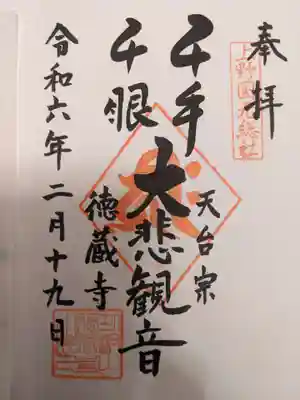 奉拝
上野国九総社
天台宗
千手
千眼
大悲観音
徳蔵寺
令和六年二月十九日